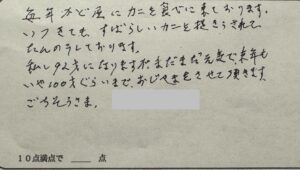 毎年かど屋にカニを食べに来ております。
いつきても、すばらしいカニを提きうされて、
たんのうしております。
私し92才になりますが、まだまだ元気で、来年も
いや100才ぐらいまで、おじゃまをさせて頂きます。
ごちそうさま。
10点満点で ＿＿ 点